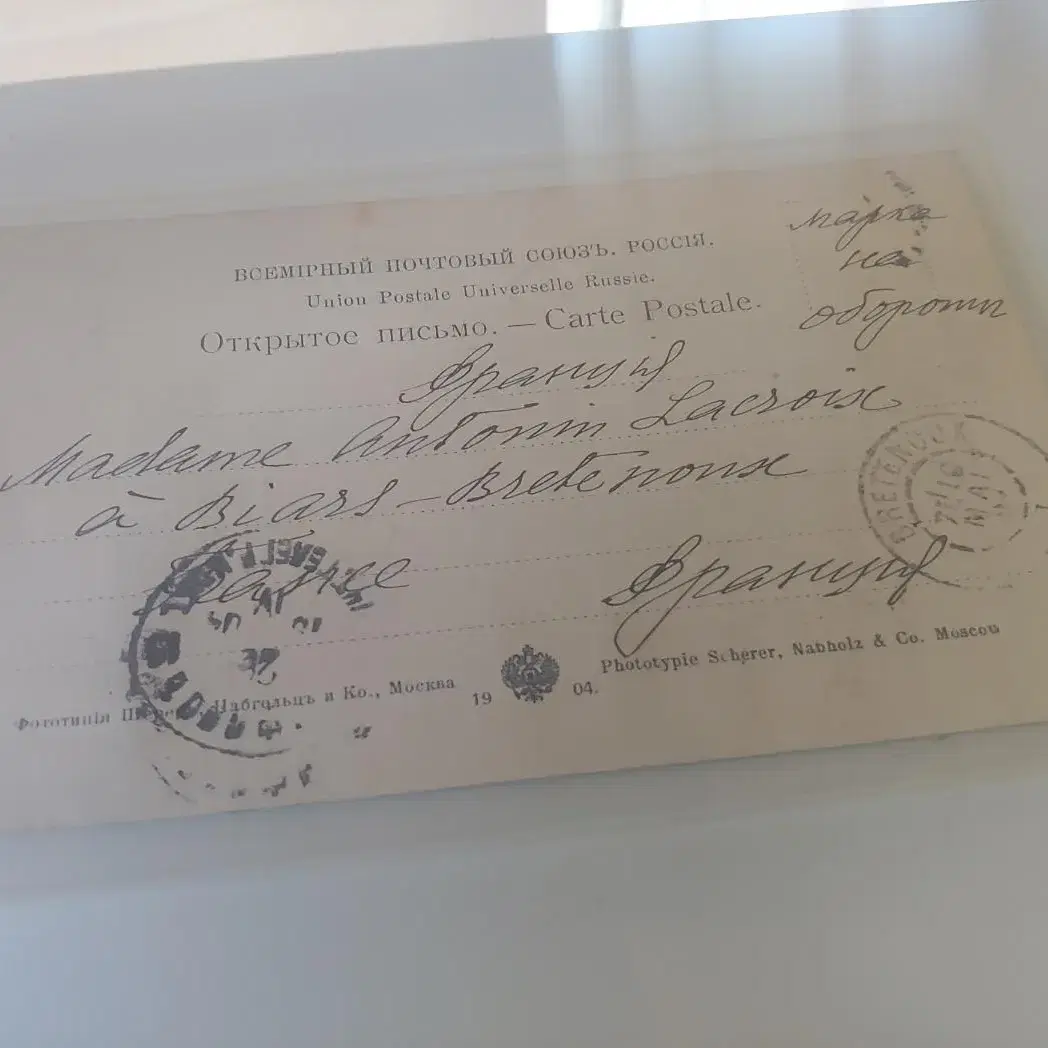 ВСЕМІРНЫЙ ПОЧТОВЫЙ СОЮЗЪ. РОССІЯ.
Union Postale Universelle Russie.
Открытое письмо. — Carte Postale.
марка
на
оборотѣ
Франція
Madame Antonin Lacroix
à Biars-Bretenoux
France
Франція
BRETENOUX
16
MAI
Фототипія Набгольцъ и Ко., Москва
1904.
Phototypie Scherer, Nabholz & Co. Moscou